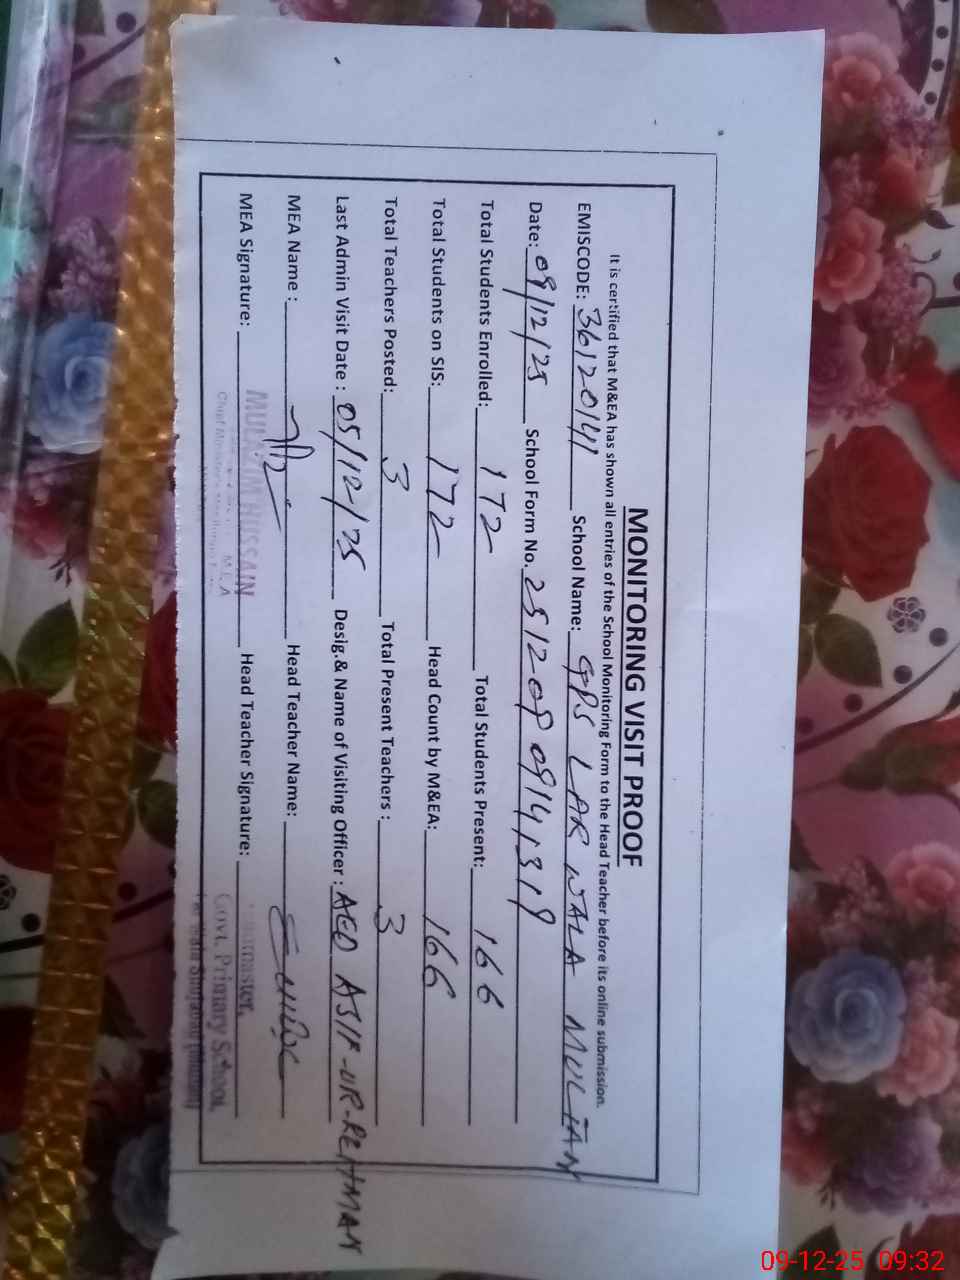 MONITORING VISIT PROOF
It is certified that M&EA has shown all entries of the School Monitoring Form to the Head Teacher before its online submission.
EMISCODE: 36120141 School Name: GPS LAR WALA MULTAN
Date: 09/12/25 School Form No. 25120909141319
Total Students Enrolled: 172 Total Students Present: 166
Total Students on SIS: 172 Head Count by M&EA: 166
Total Teachers Posted: 3 Total Present Teachers : 3
Last Admin Visit Date : 05/12/25 Desig.& Name of Visiting Officer : AEO ASIF-UR-REHMAN
MEA Name : Head Teacher Name:
MEA Signature: Head Teacher Signature:
HUSSAIN
M.E.A
Govt. Primary School,
09-12-25 09:32